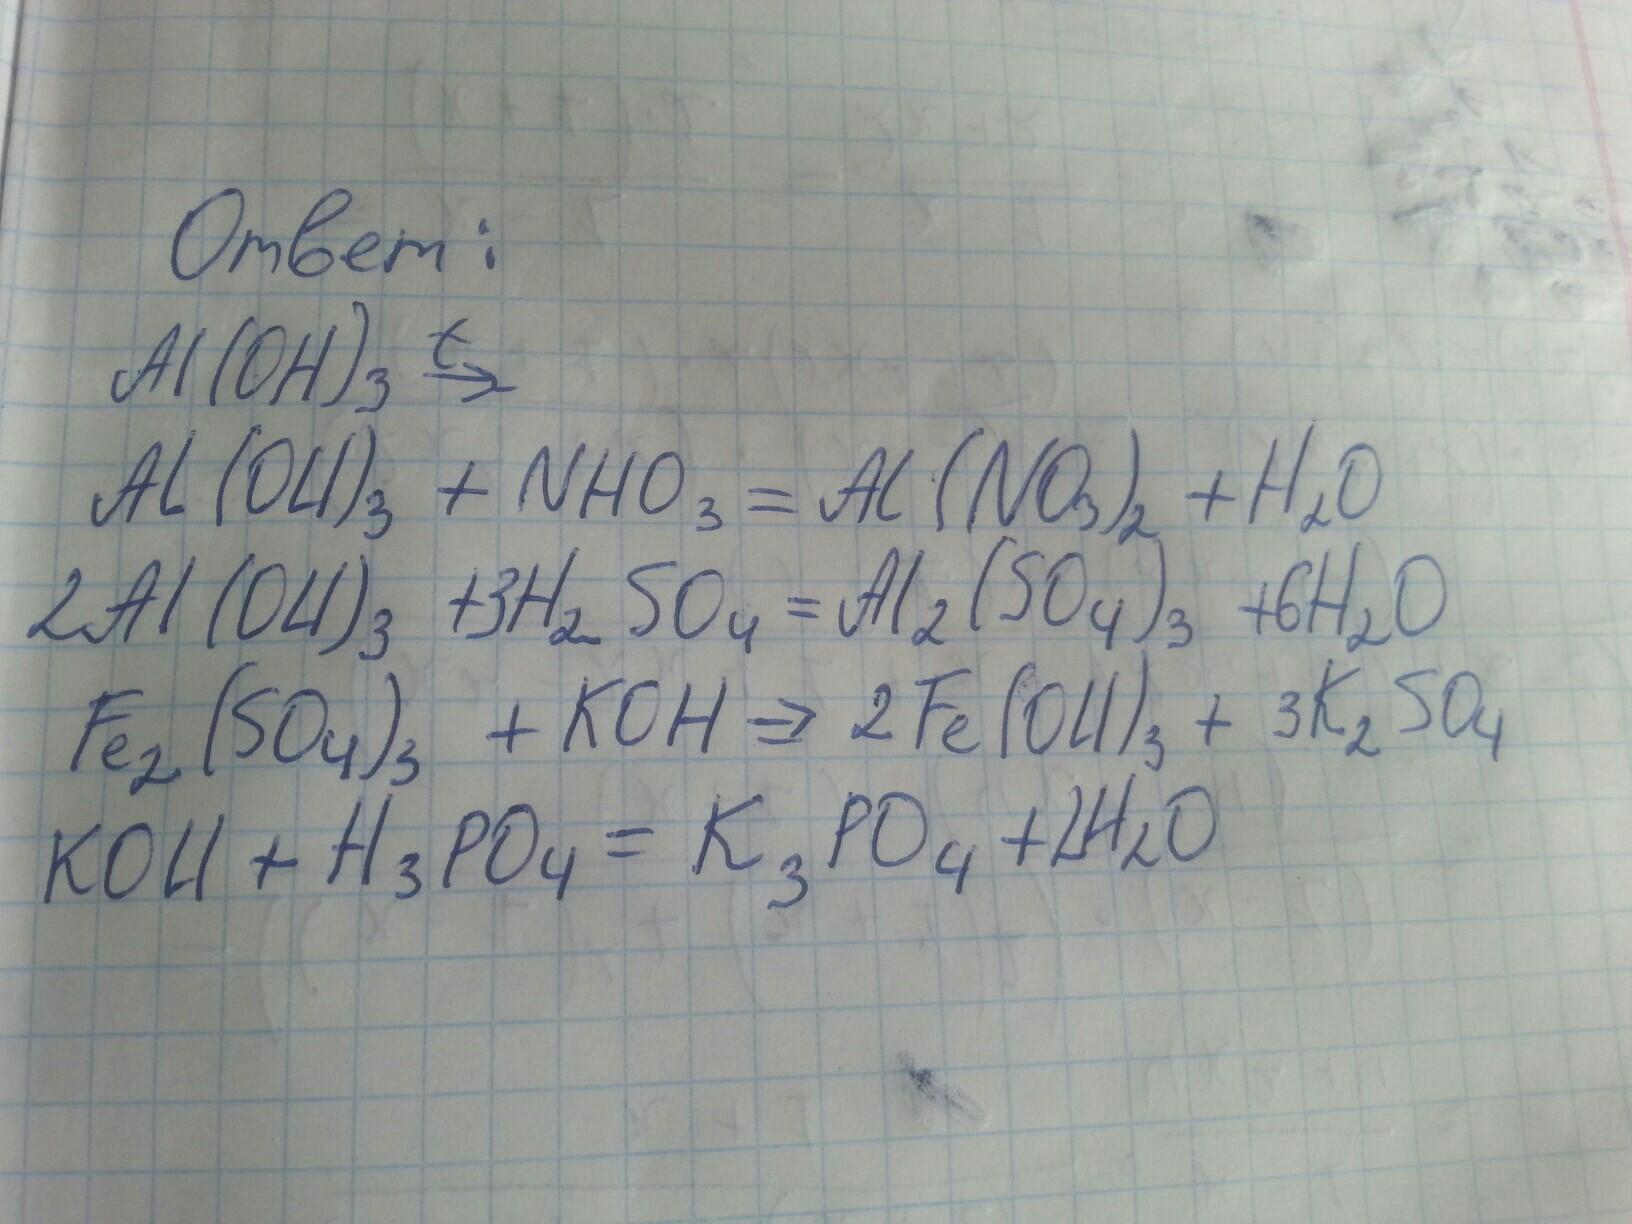 Ответ:
Al(OH)₃ t→
Al(OH)₃ + NHO₃ = Al(NO₃)₂ + H₂O
2Al(OH)₃ +3H₂SO₄ = Al₂(SO₄)₃ +6H₂O
Fe₂(SO₄)₃ + KOH ⇒ 2Fe(OH)₃ + 3K₂SO₄
KOH + H₃PO₄ = K₃PO₄ + H₂O